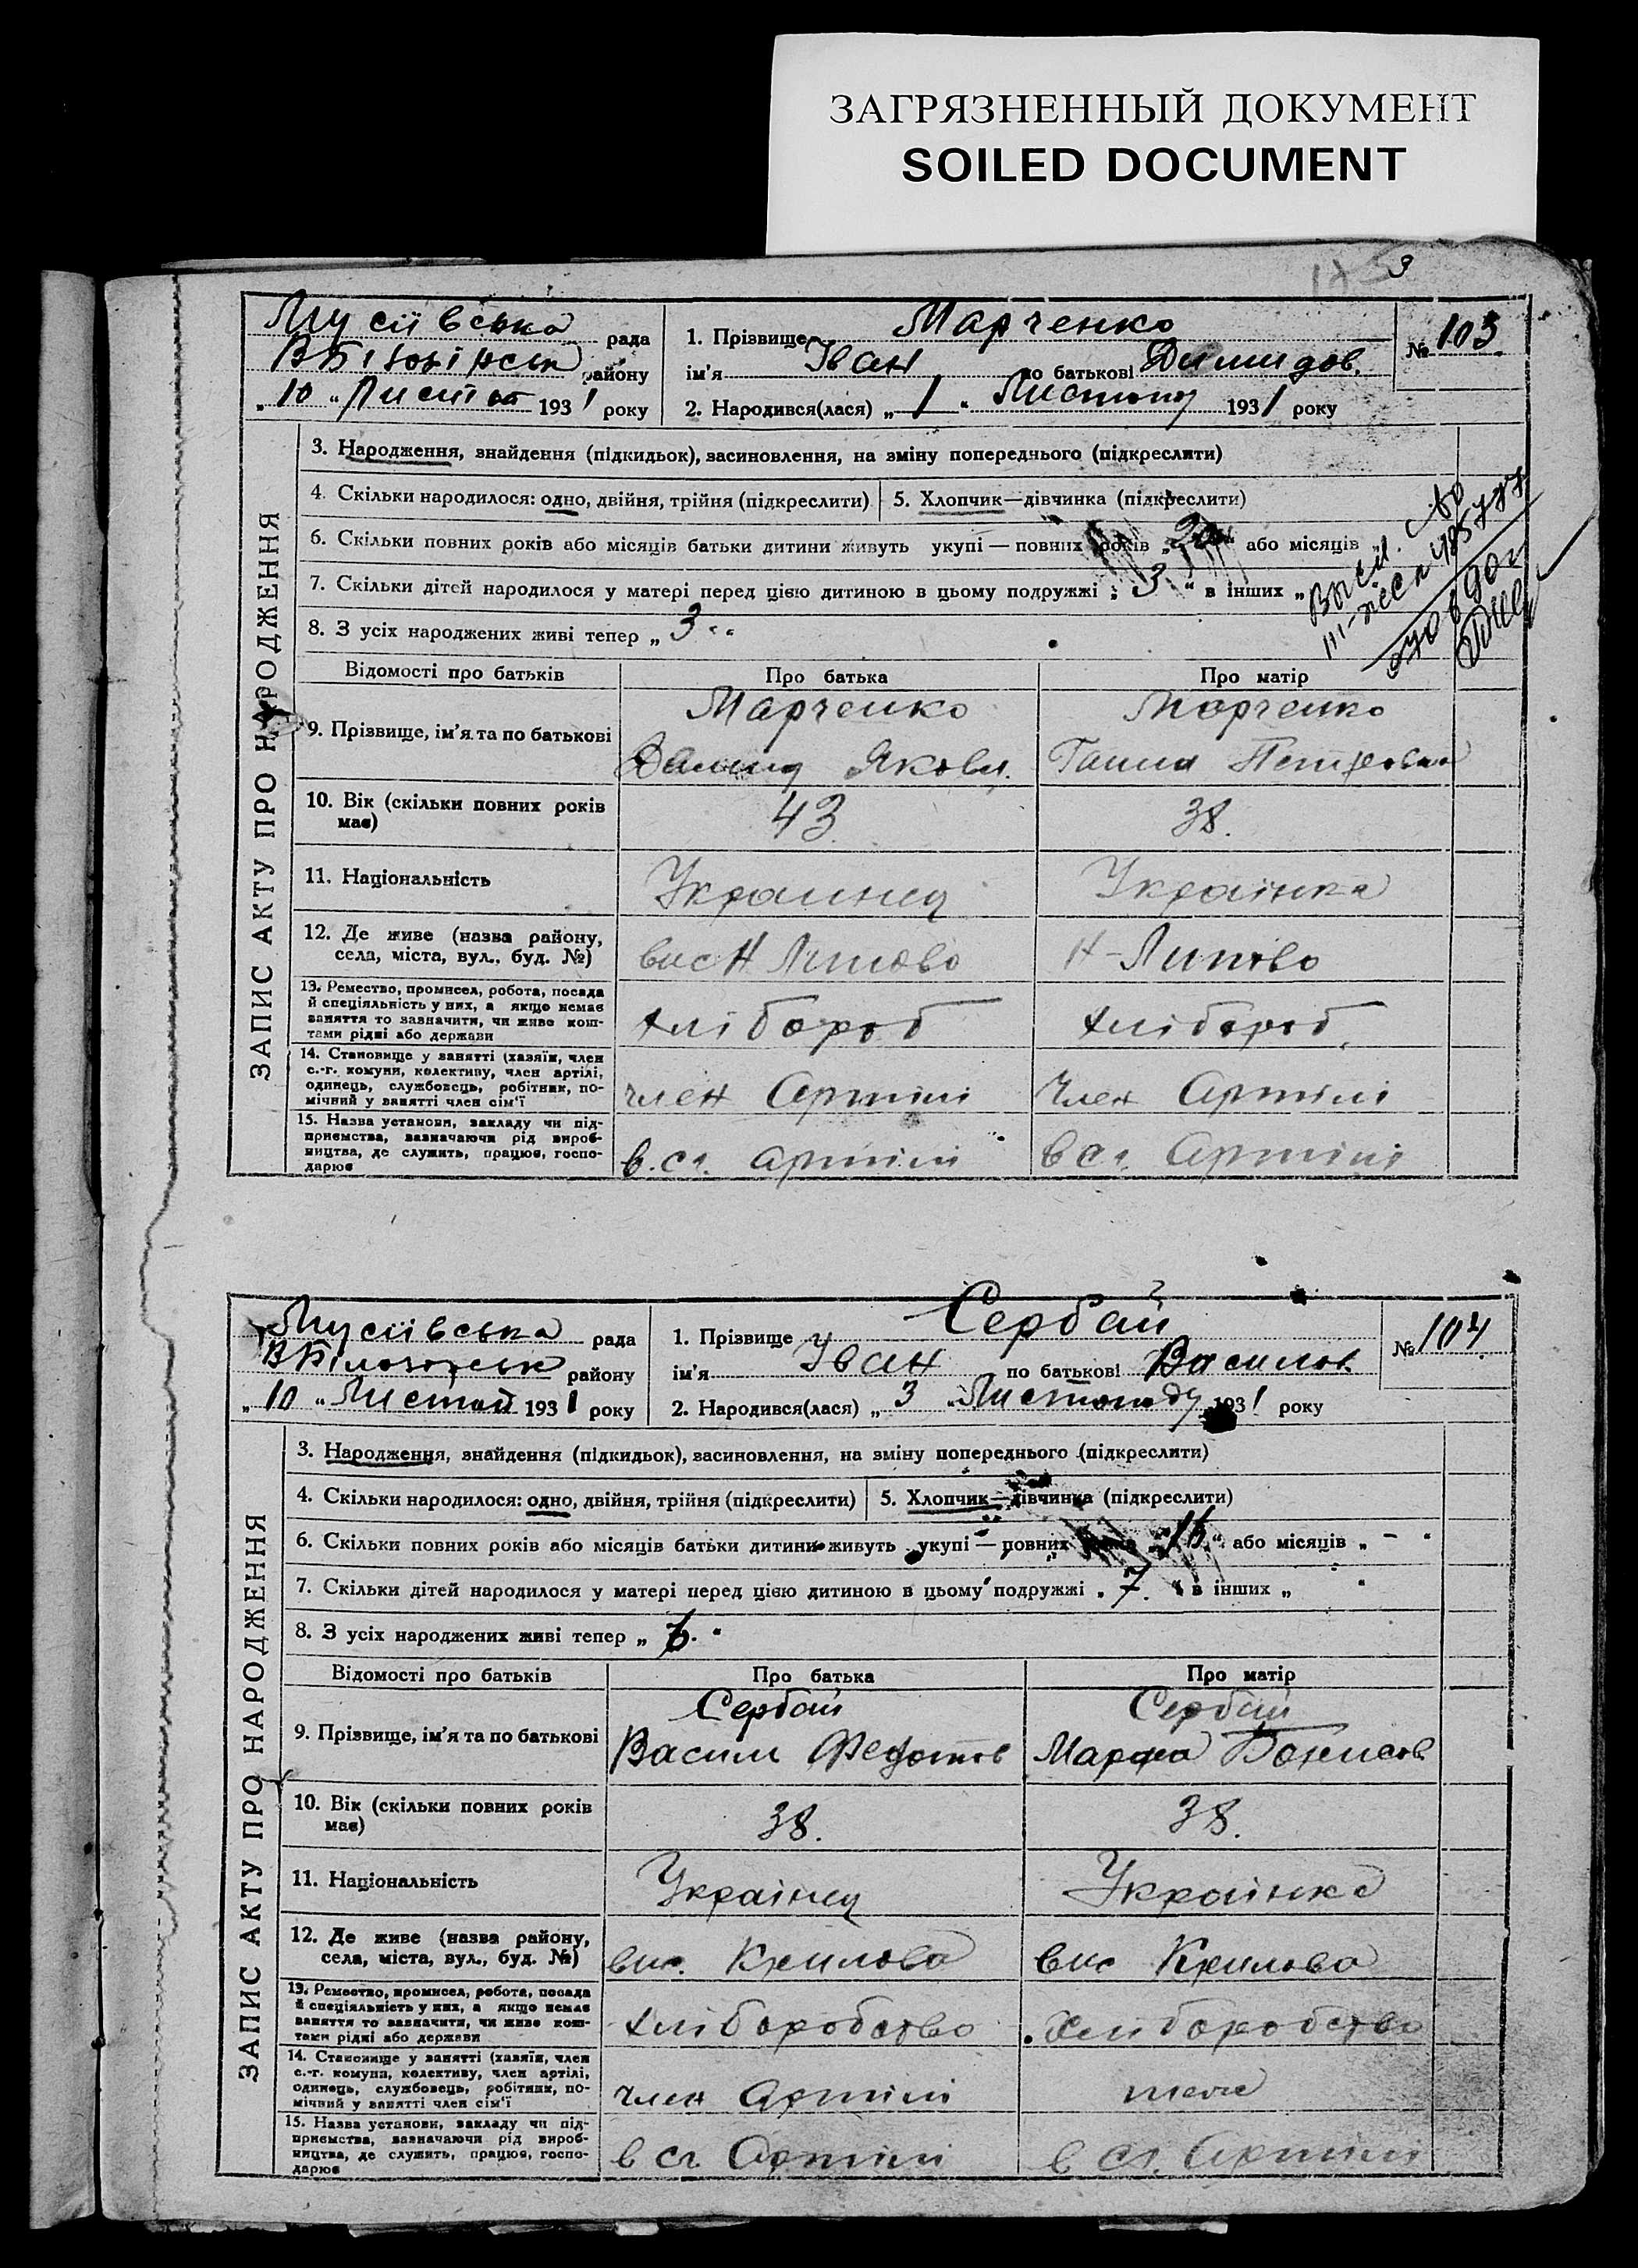 ЗАГРЯЗНЕННЫЙ ДОКУМЕНТ
SOILED DOCUMENT
3
Мусіївська рада
району
„ 10 “ Листоп 1931 року
1. Прізвище Марченко
ім'я Іван по батькові Димидов.
2. Народився(лася) „ 1 “ Листопад 1931 року
№ 103.
ЗАПИС АКТУ ПРО НАРОДЖЕННЯ
3. Народження, знайдення (підкидьок), засиновлення, на зміну попереднього (підкреслити)
4. Скільки народилося: одно, двійня, трійня (підкреслити)
5. Хлопчик—дівчинка (підкреслити)
6. Скільки повних років або місяців батьки дитини живуть укупі — повних років „ “ або місяців „
7. Скільки дітей народилося у матері перед цією дитиною в цьому подружжі „ 3. “ в інших „
8. З усіх народжених живі тепер „ 3 “
Відомості про батьків
Про батька
Про матір
9. Прізвище, ім'я та по батькові
Марченко
Яковл.
Марченко
Ганна Петровна
10. Вік (скільки повних років має)
43
38.
11. Національність
Украинец
Українка
12. Де живе (назва району, села, міста, вул., буд. №)
вис Н Липово
Н-Липово
13. Ремество, промисел, робота, посада
й спеціяльність у них, а якщо немає
заняття то зазначити, чи живе кош-
тами рідні або держави
хлібороб
хлібороб.
14. Становище у занятті (хазяїн, член
с.-г. комуни, колективу, член артілі,
одинець, службовець, робітник, по-
мічний у занятті член сім'ї
член Артілі
Член Артілі
15. Назва установи, закладу чи під-
приємства, зазначаючи рід вироб-
ництва, де служить, працює, госпо-
дарює
в.сг. артілі
в сг. Артілі
Мусіївська рада
району
„ 10 “ Листоп 1931 року
1. Прізвище Сербай
ім'я Іван по батькові Василов.
2. Народився(лася) „ 3 “ Листопаду 1931 року
№ 104.
ЗАПИС АКТУ ПРО НАРОДЖЕННЯ
3. Народження, знайдення (підкидьок), засиновлення, на зміну попереднього (підкреслити)
4. Скільки народилося: одно, двійня, трійня (підкреслити)
5. Хлопчик—дівчинка (підкреслити)
6. Скільки повних років або місяців батьки дитини живуть укупі — повних „ “ або місяців „ - “
7. Скільки дітей народилося у матері перед цією дитиною в цьому подружжі „ 7. “ в інших „ “
8. З усіх народжених живі тепер „ “
Відомості про батьків
Про батька
Про матір
9. Прізвище, ім'я та по батькові
Сербай
Васил Федотов
Сербай
Марфа
10. Вік (скільки повних років має)
38.
38.
11. Національність
Українец
Українка
12. Де живе (назва району, села, міста, вул., буд. №)
вис. Крилова
вис Крилова
13. Ремество, промисел, робота, посада
й спеціяльність у них, а якщо немає
заняття то зазначити, чи живе кош-
тами рідні або держави
хліборобство
хліборобство
14. Становище у занятті (хазяїн, член
с.-г. комуни, колективу, член артілі,
одинець, службовець, робітник, по-
мічний у занятті член сім'ї
член Артілі
15. Назва установи, закладу чи під-
приємства, зазначаючи рід вироб-
ництва, де служить, працює, госпо-
дарює
в сг. Артілі
в сг. Артілі